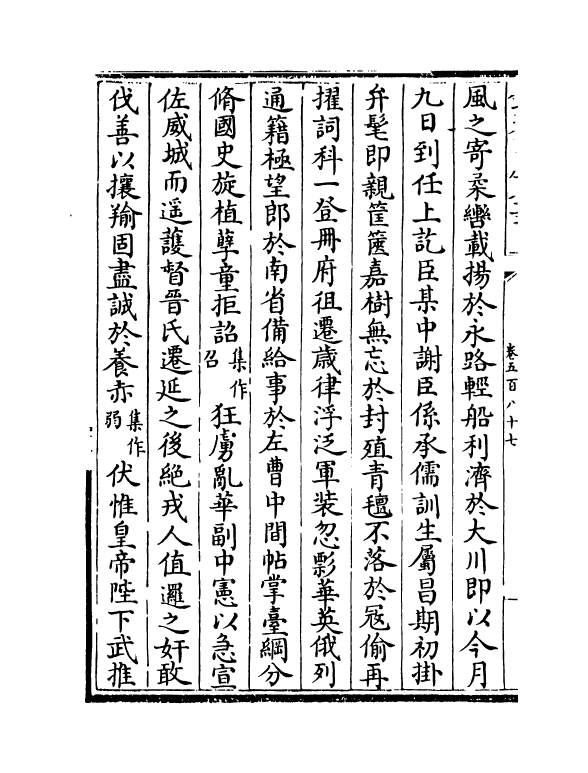 風之寄柔轡載揚於永路輕船利濟於大川即以今月
九日到任上訖臣某中謝臣係承儒訓生屬昌期初掛
弁髦即親筐篋嘉樹無忘於封殖青氊不落於冦偷再
擢詞科一登冊府徂遷歳律浮泛軍装忽影華英俄列
通籍極望郎於南省備給事於左曹中間帖掌臺綱分
脩國史旋植孽童拒詔集作召狂虜亂華副中憲以急宣
佐威城而遥護督晉氏遷延之後絶戎人值邏之奸敢
伐善以攘羭固盡誠於養赤集作弱伏惟皇帝陛下武推
卷五百八十七